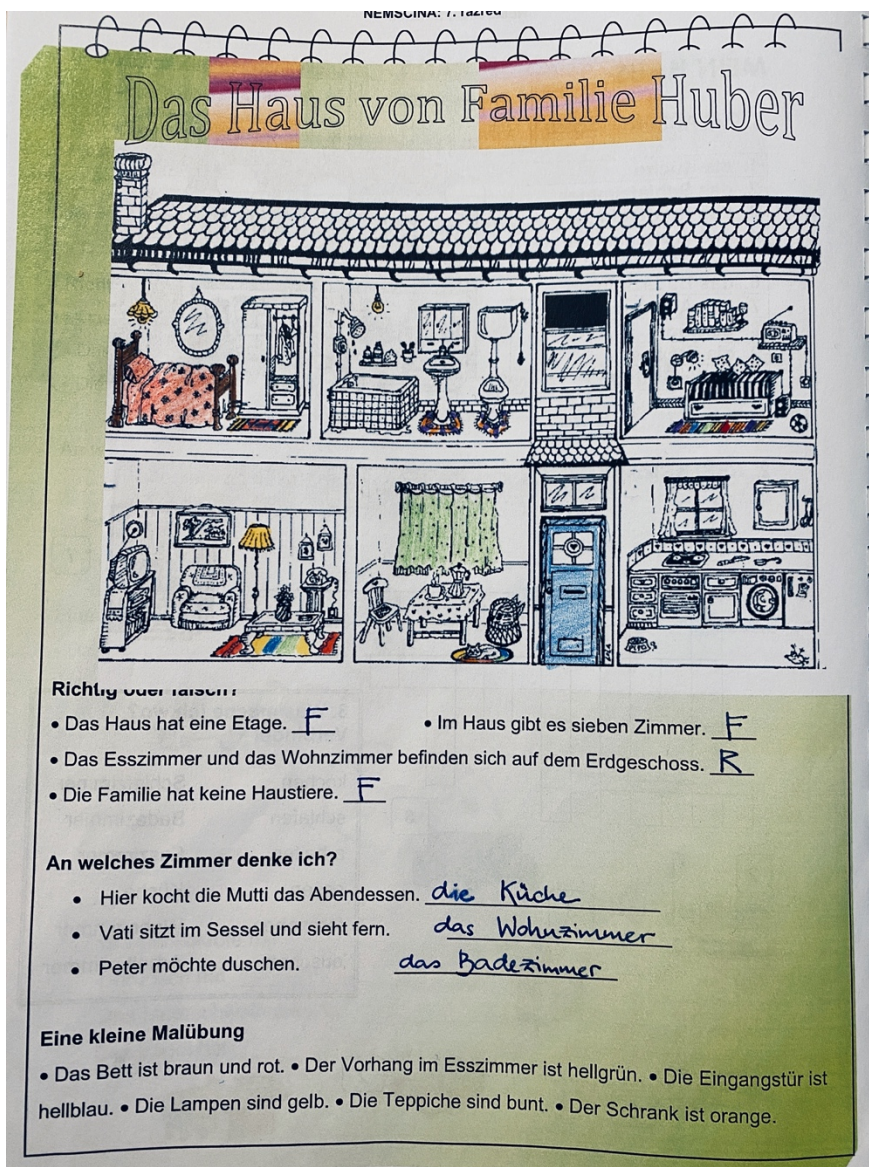 NEMŠČINA: 7. razred
Das Haus von Familie Huber
Richtig oder falsch?
• Das Haus hat eine Etage. F • Im Haus gibt es sieben Zimmer. F
• Das Esszimmer und das Wohnzimmer befinden sich auf dem Erdgeschoss. R
• Die Familie hat keine Haustiere. F
An welches Zimmer denke ich?
• Hier kocht die Mutti das Abendessen. die Küche
• Vati sitzt im Sessel und sieht fern. das Wohnzimmer
• Peter möchte duschen. das Badezimmer
Eine kleine Malübung
• Das Bett ist braun und rot. • Der Vorhang im Esszimmer ist hellgrün. • Die Eingangstür ist
hellblau. • Die Lampen sind gelb. • Die Teppiche sind bunt. • Der Schrank ist orange.